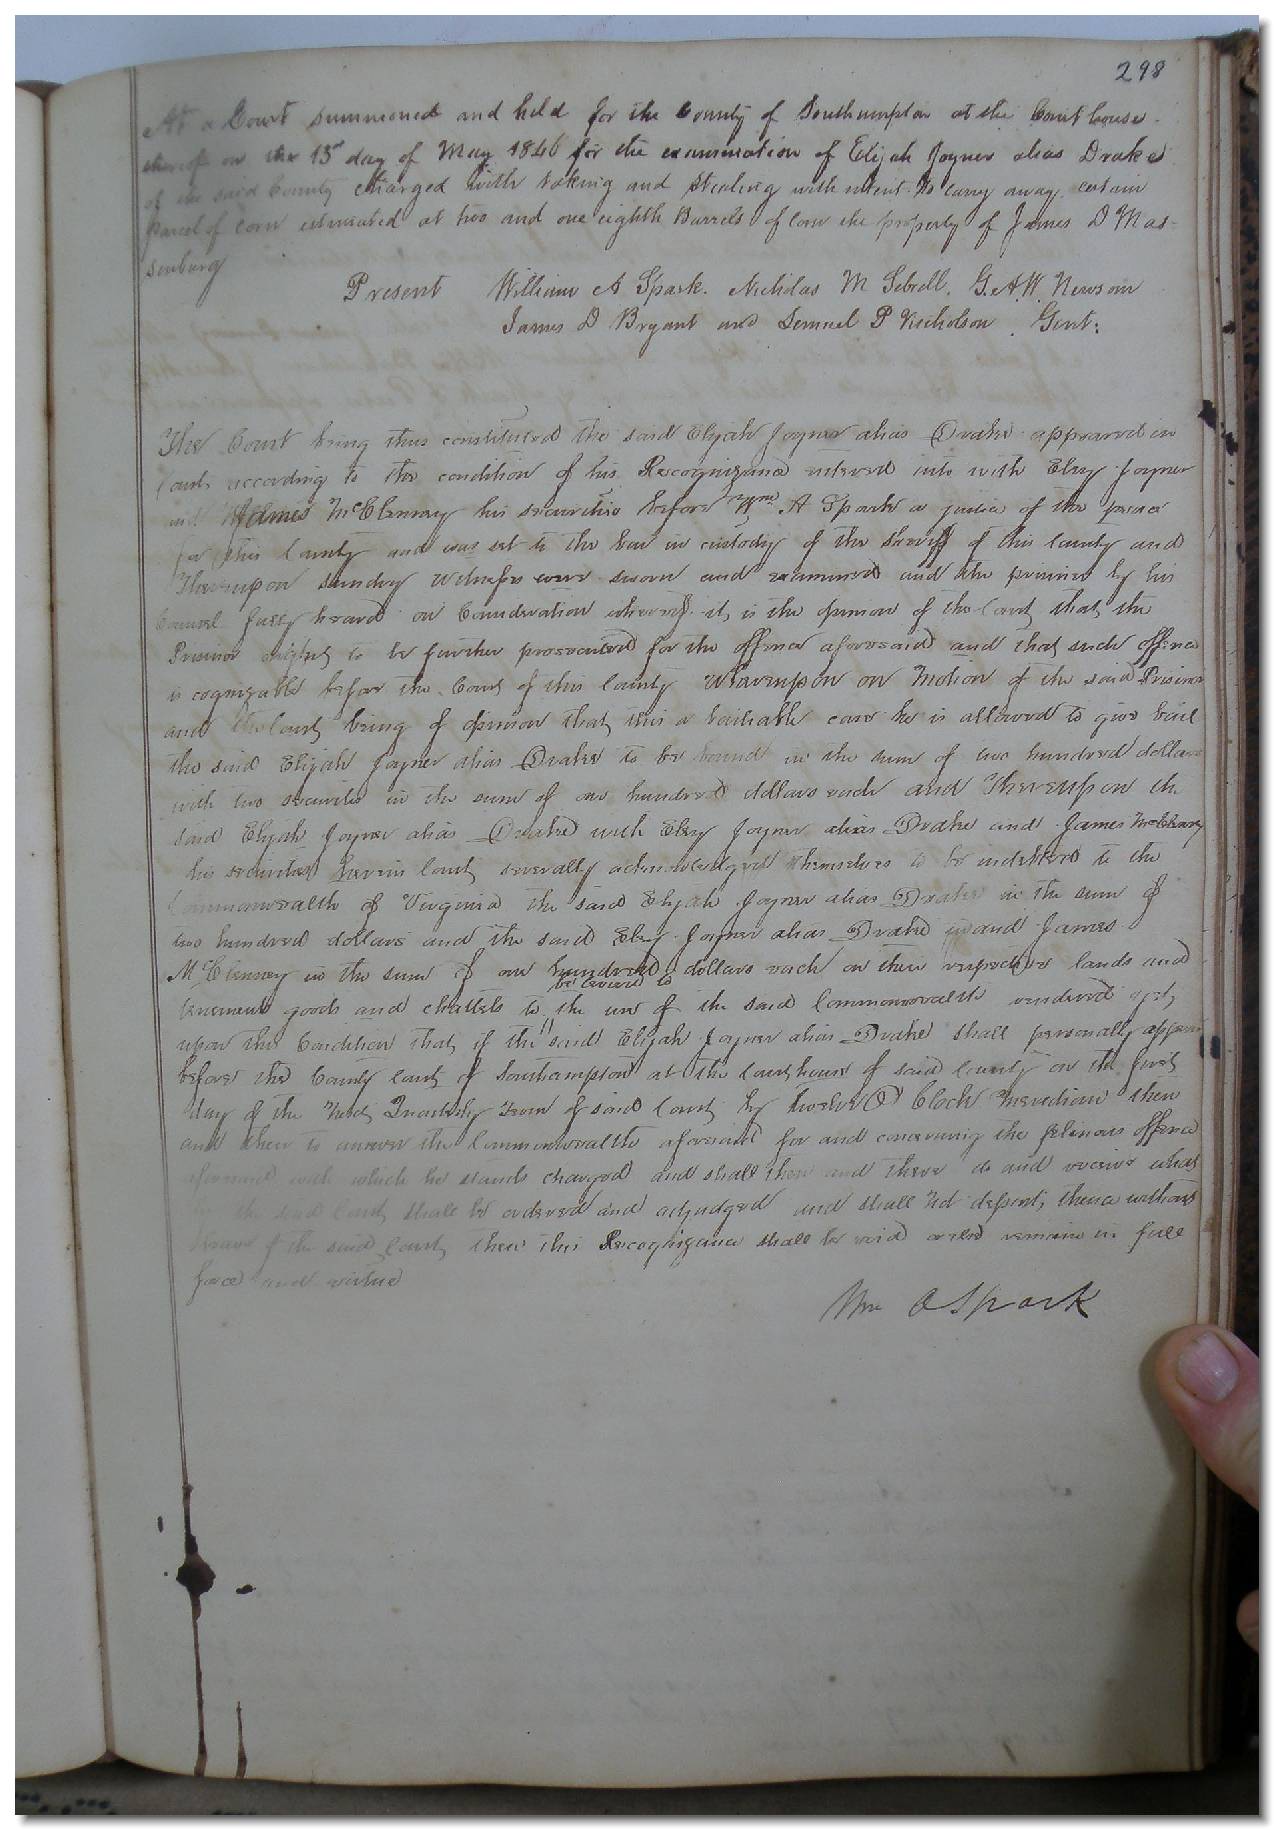 298
At a Court summoned and held for the County of Southampton at the Courthouse
thereof on the 15th day of May 1846 for the examination of Elijah Joyner alias Drake
of the said County charged with taking and stealing with intent to carry away certain
parcel of corn estimated at two and one eighth Barrels of Corn the property of James D Mas-
senburg
Present William A Spark. Nicholas M Sebrell. G.A.W. Newsom
James D Bryant and Lemuel P Nicholson Gent:
The Court being thus constituted the said Elijah Joyner alias Drake appeared in
Court according to the condition of his Recognizance entered into with Elzy Joyner
and McClenny his securities before Wm A Spark a justice of the peace
for this County and was set to the bar in custody of the Sheriff of this County and
Thereupon sundry witnesses were sworn and examined and the prisoner by his
Counsel fully heard on Consideration whereof it is the opinion of the Court that the
Prisoner ought to be further prosecuted for the offence aforesaid and that such offence
is cognizable before the Court of this County Whereupon on Motion of the said Prisoner
and the Court being of opinion that this a bailable case he is allowed to give bail
the said Elijah Joyner alias Drake to be bound in the sum of two hundred dollars
with two securities in the sum of one hundred dollars each and Thereupon the
said Elijah Joyner alias Drake with Elzy Joyner alias Drake and James McClenny
his securities here in Court severally acknowledged themselves to be indebted to the
Commonwealth of Virginia the said Elijah Joyner alias Drake in the sum of
two hundred dollars and the said Elzy Joyner alias Drake and James
McClenney in the sum of one hundred dollars each on their respective lands and
be levied to
tenements goods and chattels to the use of the said Commonwealth rendered yet
upon this Condition that if the said Elijah Joyner alias Drake shall personally appear
before the County Court of Southampton at the Courthouse of said County on the first
day of the Next Quarterly Term of said Court by twelve O Clock Meridian then
and there to answer the Commonwealth aforesaid for and concerning the felonious offence
aforesaid with which he stands charged and shall then and there do and receive what
by the said Court shall be ordered and adjudged and shall not depart thence without
leave of the said Court then this Recognizance shall be void or else remain in full
force and virtue
Wm A Spark